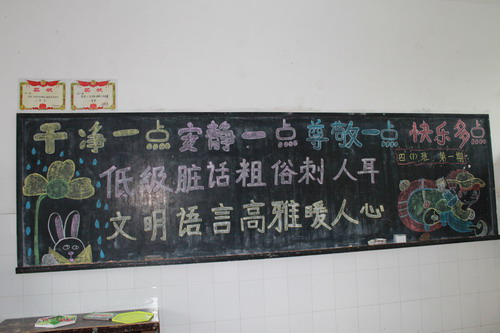 奖状 奖状
干净一点 安静一点 尊敬一点 快乐多点
四(1)班 第一期
低级脏话粗俗刺人耳
文明语言高雅暖人心